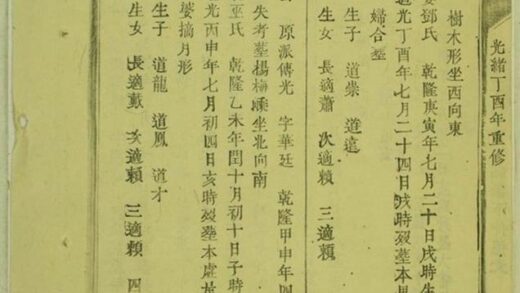 光緒丁酉年重修
樹木形坐西向東
鄧氏 乾隆庚寅年七月二十日戌時生
道光丁酉年七月二十四日戌時歿葬本
婦合塋
生子 道崇 道遠
生女 長適蕭 次適賴 三適賴
原派傳光 字華廷 乾隆甲申年四
失考墓楊梅 坐北向南
巫氏 乾隆乙未年閏十月初十日子時
光丙申年七月初四日亥時歿塟本處
婆摘月形
生子 道龍 道鳳 道才
生女 長適戴 次適賴 三適賴 四